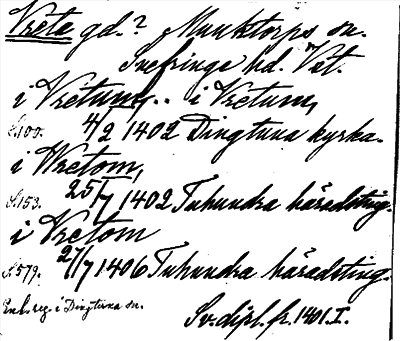 Vreta gd.? Munktorps sn.
Snefringe hd. Vstl.
i Vretum, .. i Vretum,
s.100. 4/2 1402 Dingtuna kyrka.
i Wretom,
s.153. 25/7 1402 Tuhundra häradsting.
i Vretom
s.579. 27/7 1406 Tuhundra häradsting.
Enl. reg. i Dingtuna sn.
Sv. dipl. fr. 1401. I.